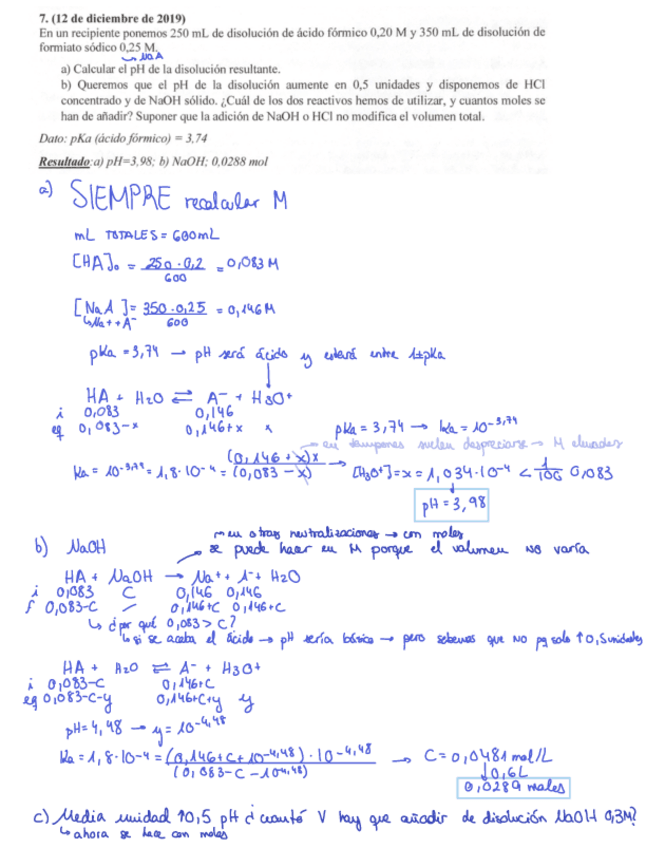 7. (12 de diciembre de 2019)
En un recipiente ponemos 250 mL de disolución de ácido fórmico 0,20 M y 350 mL de disolución de
formiato sódico 0,25 M.
↳ NaA
a) Calcular el pH de la disolución resultante.
b) Queremos que el pH de la disolución aumente en 0,5 unidades y disponemos de HCl
concentrado y de NaOH sólido. ¿Cuál de los dos reactivos hemos de utilizar, y cuantos moles se
han de añadir? Suponer que la adición de NaOH o HCl no modifica el volumen total.
Dato: pKa (ácido fórmico) = 3,74
Resultado: a) pH=3,98; b) NaOH; 0,0288 mol
a) SIEMPRE recalcular M
mL TOTALES = 600mL
[HA]₀ = 250 · 0,2 / 600 = 0,083 M
[NaA] = 350 · 0,25 / 600 = 0,146M
↳ Na+ + A-
pKa = 3,74 → pH será ácido y estará entre 1±pKa
HA + H2O ⇌ A- + H3O+
i 0,083 0,146
eq 0,083-x 0,146+x x
pKa = 3,74 → Ka = 10^-3,74
→ en tampones suelen despreciarse → M elevadas
Ka = 10^-3,74 = 1,8·10^-4 = (0,146 + x)x / (0,083 - x) → [H3O+] = x = 1,034·10^-4 < 1/100 0,083
pH = 3,98
b) NaOH
→ en otras neutralizaciones → con moles
se puede hacer en M porque el volumen no varía
HA + NaOH → Na+ + A- + H2O
i 0,083 C 0,146 0,146
f 0,083-C / 0,146+C 0,146+C
↳ ¿por qué 0,083 > C?
↳ si se acaba el ácido → pH sería básico → pero sabemos que NO pq solo ↑0,5 unidades
HA + H2O ⇌ A- + H3O+
i 0,083-C 0,146+C
eq 0,083-C-y 0,146+C+y y
pH = 4,48 → y = 10^-4,48
Ka = 1,8·10^-4 = (0,146+C+10^-4,48) · 10^-4,48 / (0,083-C-10^4,48) → C = 0,0481 mol/L
↓ 0,6L
0,0289 moles
c) Media unidad ↑0,5 pH ¿cuánto V hay que añadir de disolución NaOH 0,3M?
↳ ahora se hace con moles